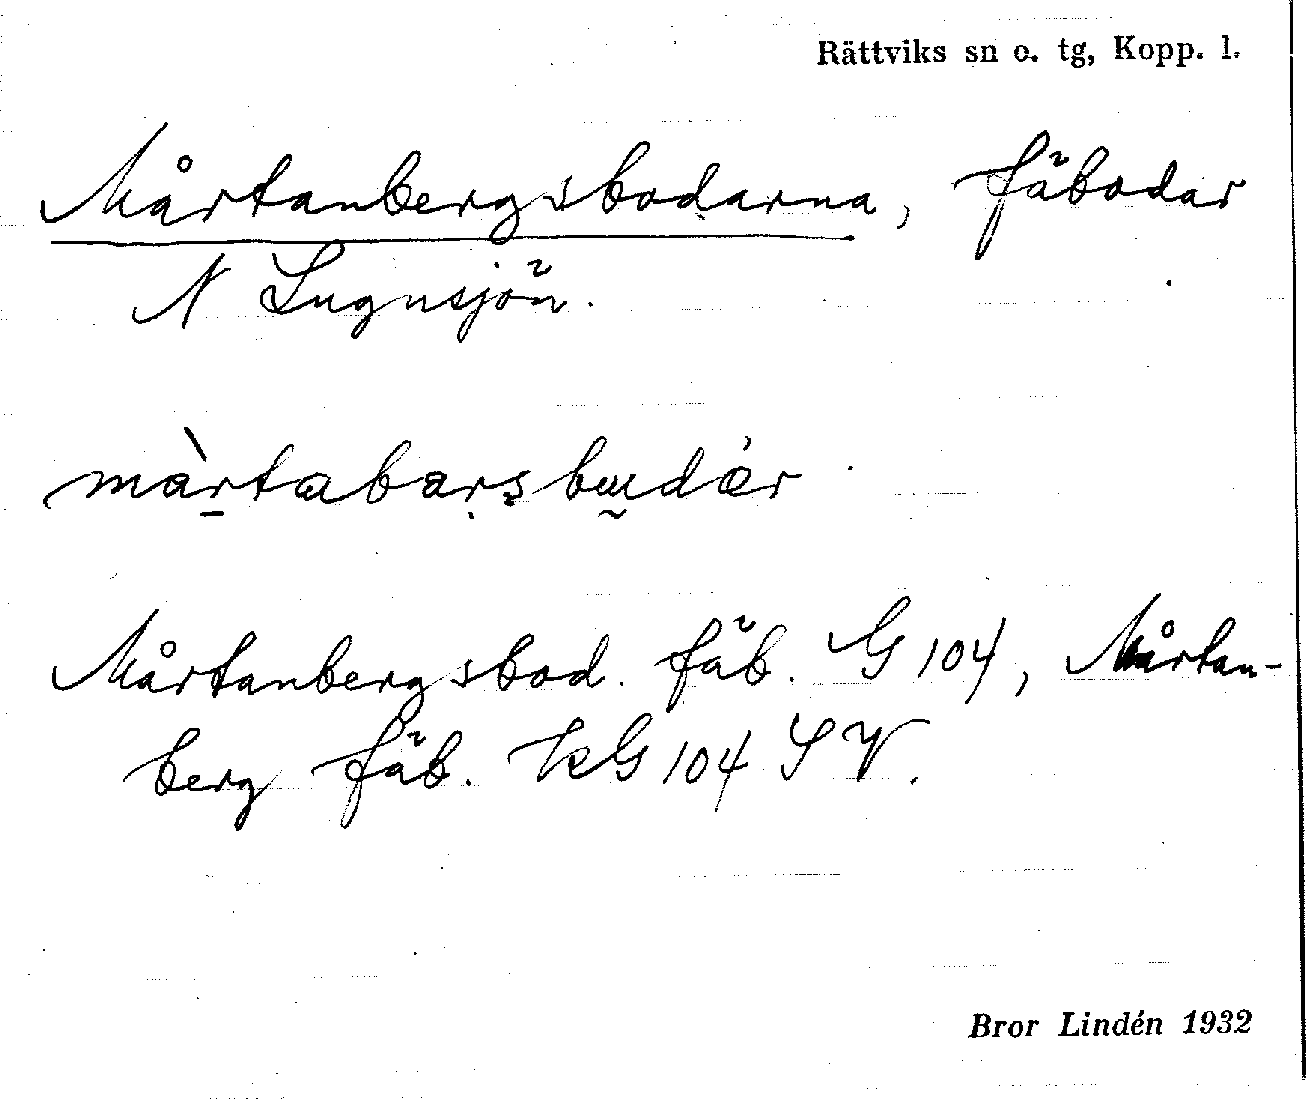 Rättviks sn o. tg, Kopp. l.
Mårtanbergsbodarna, fäbodar
N Lugnsjön.
Mårtanbergsbod. fäb. G 104, Mårtan-
berg fäb. KG 104 SV.
Bror Lindén 1932